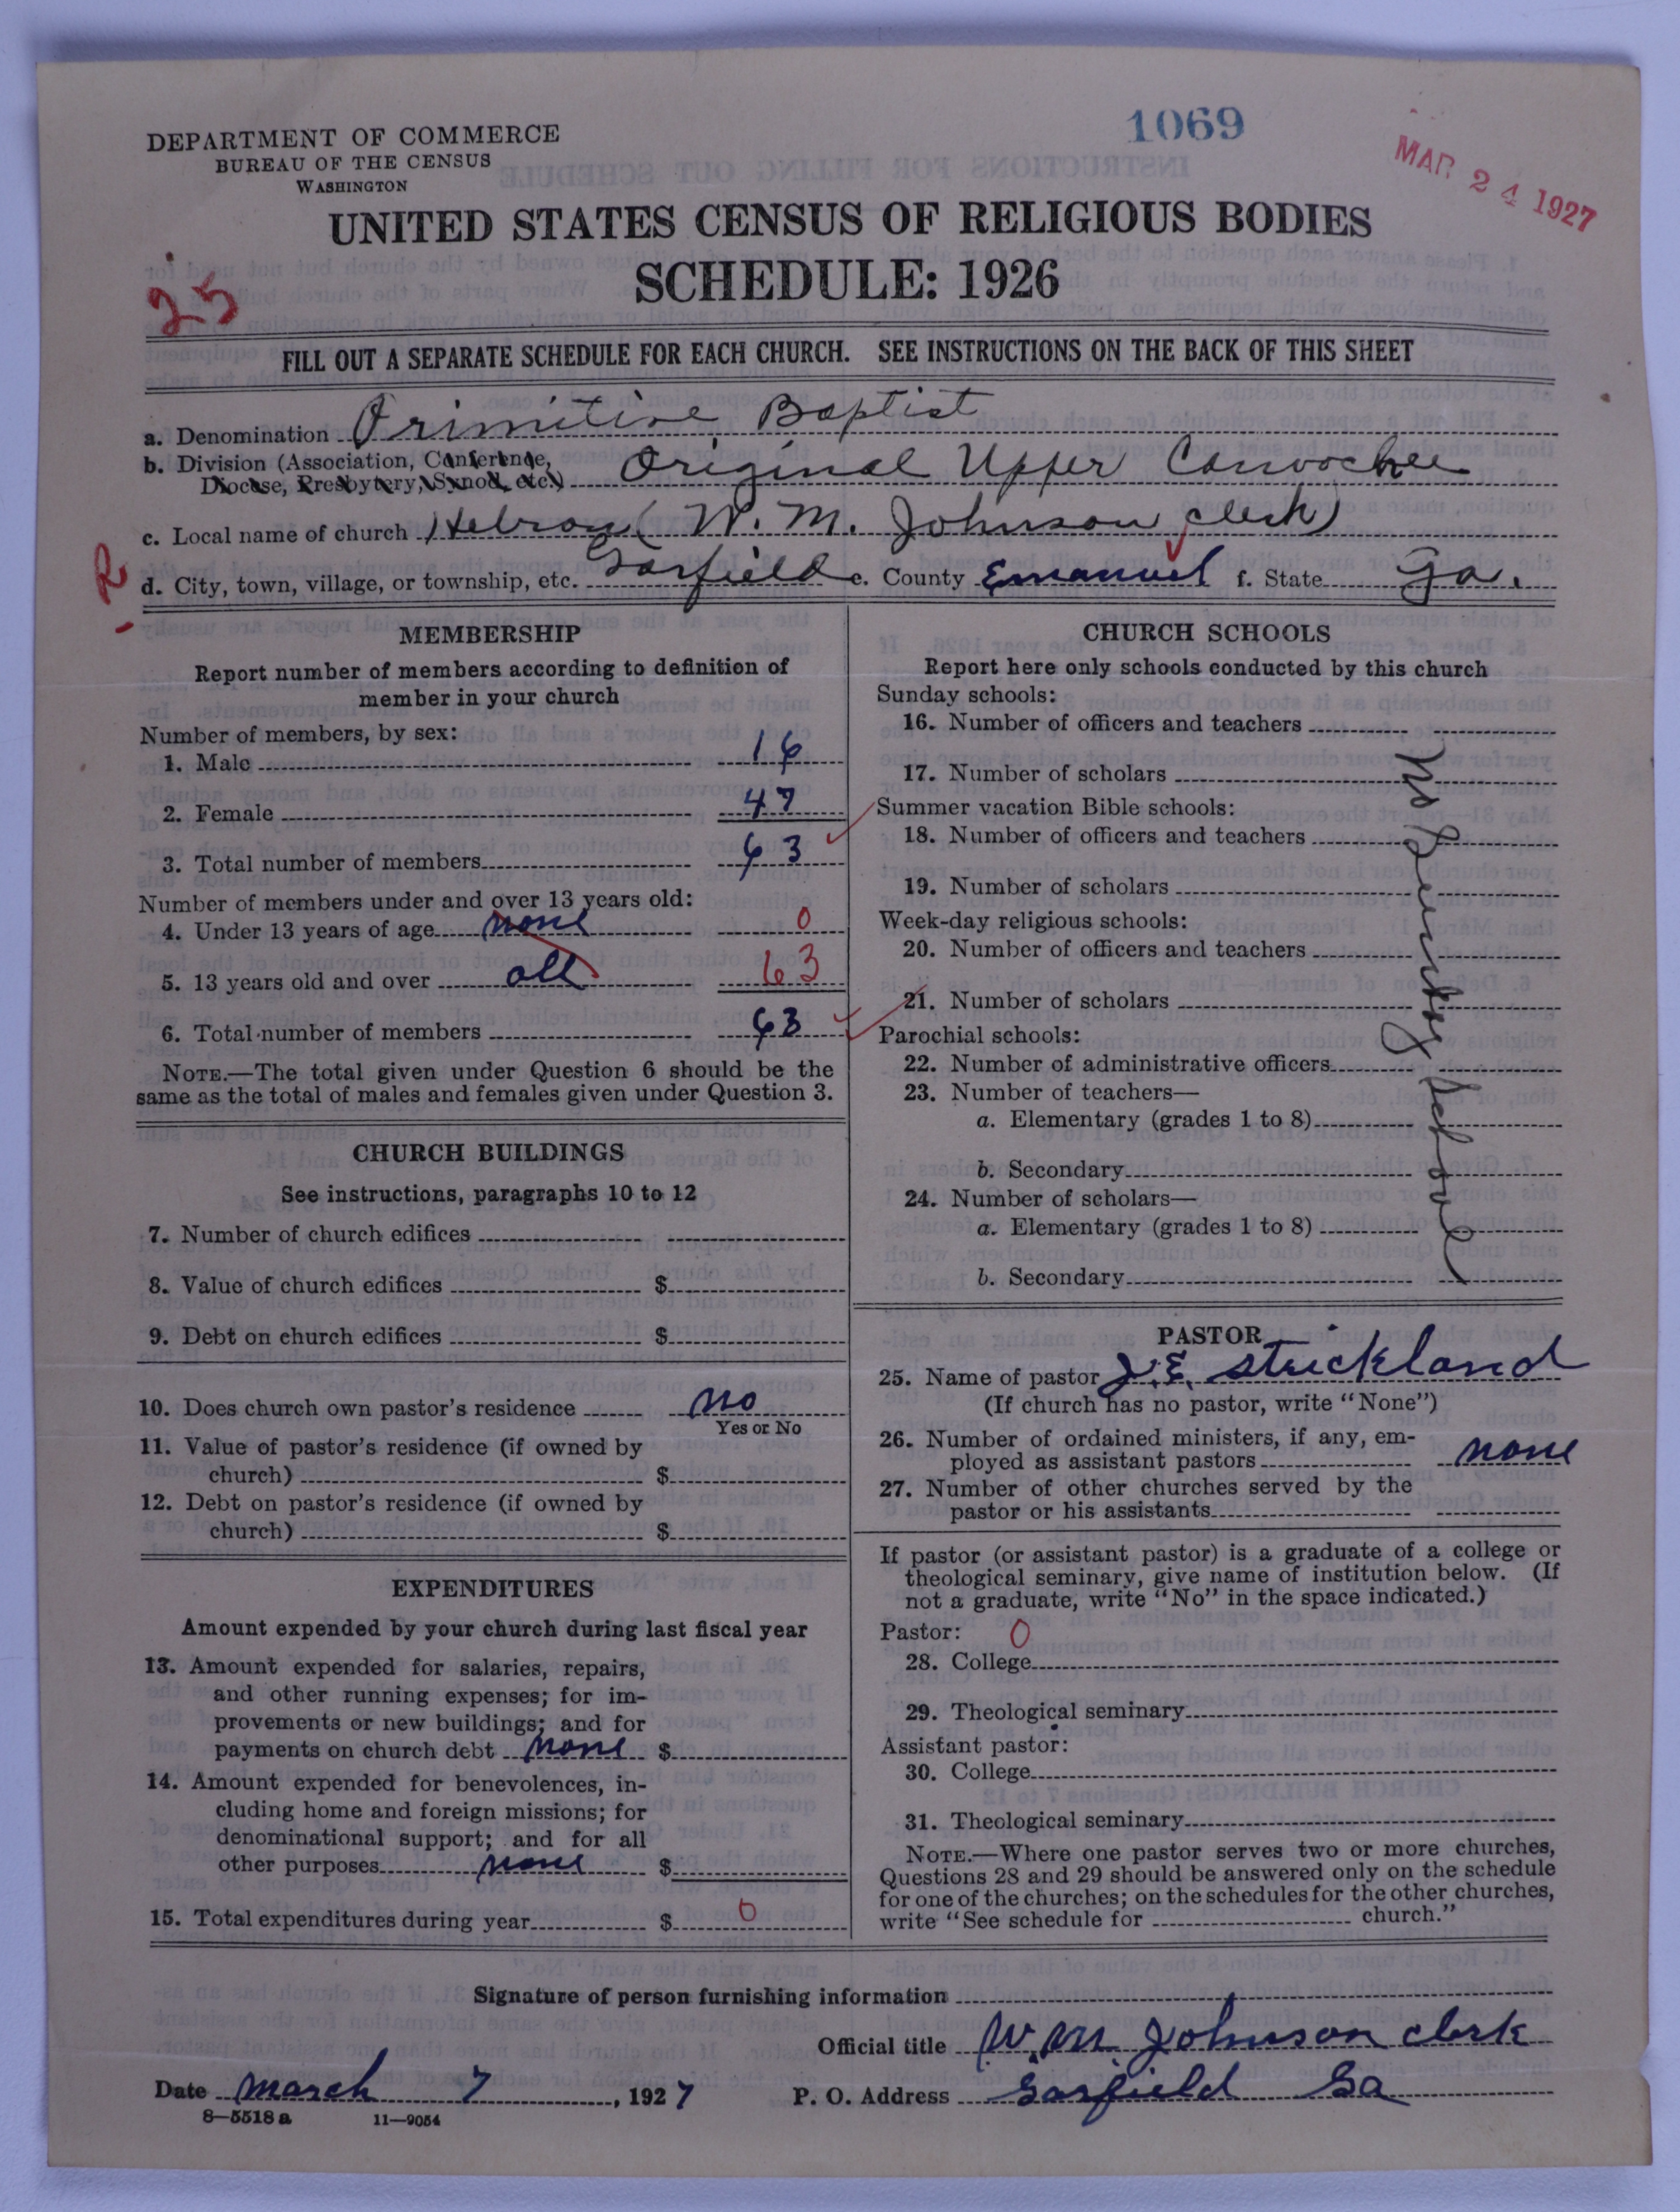 1069
MAR 24 1927
DEPARTMENT OF COMMERCE
BUREAU OF THE CENSUS
WASHINGTON
UNITED STATES CENSUS OF RELIGIOUS BODIES
SCHEDULE: 1926
25
FILL OUT A SEPARATE SCHEDULE FOR EACH CHURCH. SEE INSTRUCTIONS ON THE BACK OF THIS SHEET
a. Denomination Primitive Baptist
b. Division (Association, Conference, Diocese, Presbytery, Synod, etc.) Original Upper Canoochee
c. Local name of church Hebron (W. M. Johnson, clerk)
R
d. City, town, village, or township, etc. Garfield e. County Emanuel f. State Ga.
MEMBERSHIP
Report number of members according to definition of
member in your church
Number of members, by sex:
1. Male 16
2. Female 47
3. Total number of members 63
Number of members under and over 13 years old:
4. Under 13 years of age none 0
5. 13 years old and over all 63
6. Total number of members 63
NOTE.—The total given under Question 6 should be the
same as the total of males and females given under Question 3.
CHURCH BUILDINGS
See instructions, paragraphs 10 to 12
7. Number of church edifices
8. Value of church edifices $
9. Debt on church edifices $
10. Does church own pastor's residence no
Yes or No
11. Value of pastor's residence (if owned by
church) $
12. Debt on pastor's residence (if owned by
church) $
EXPENDITURES
Amount expended by your church during last fiscal year
13. Amount expended for salaries, repairs,
and other running expenses; for im-
provements or new buildings; and for
payments on church debt none $
14. Amount expended for benevolences, in-
cluding home and foreign missions; for
denominational support; and for all
other purposes none $
15. Total expenditures during year $ 0
CHURCH SCHOOLS
Report here only schools conducted by this church
Sunday schools:
16. Number of officers and teachers
17. Number of scholars
Summer vacation Bible schools:
18. Number of officers and teachers
19. Number of scholars
Week-day religious schools:
20. Number of officers and teachers
21. Number of scholars
Parochial schools:
22. Number of administrative officers
23. Number of teachers—
a. Elementary (grades 1 to 8)
b. Secondary
24. Number of scholars—
a. Elementary (grades 1 to 8)
b. Secondary
No Sunday School
PASTOR
25. Name of pastor J. E. Strickland
(If church has no pastor, write "None")
26. Number of ordained ministers, if any, em-
ployed as assistant pastors none
27. Number of other churches served by the
pastor or his assistants
If pastor (or assistant pastor) is a graduate of a college or
theological seminary, give name of institution below. (If
not a graduate, write "No" in the space indicated.)
Pastor: 0
28. College
29. Theological seminary
Assistant pastor:
30. College
31. Theological seminary
NOTE.—Where one pastor serves two or more churches,
Questions 28 and 29 should be answered only on the schedule
for one of the churches; on the schedules for the other churches,
write "See schedule for church."
Signature of person furnishing information
Official title W. M. Johnson clerk
Date March 7, 1927 P. O. Address Garfield Ga
8—5518a 11—9054